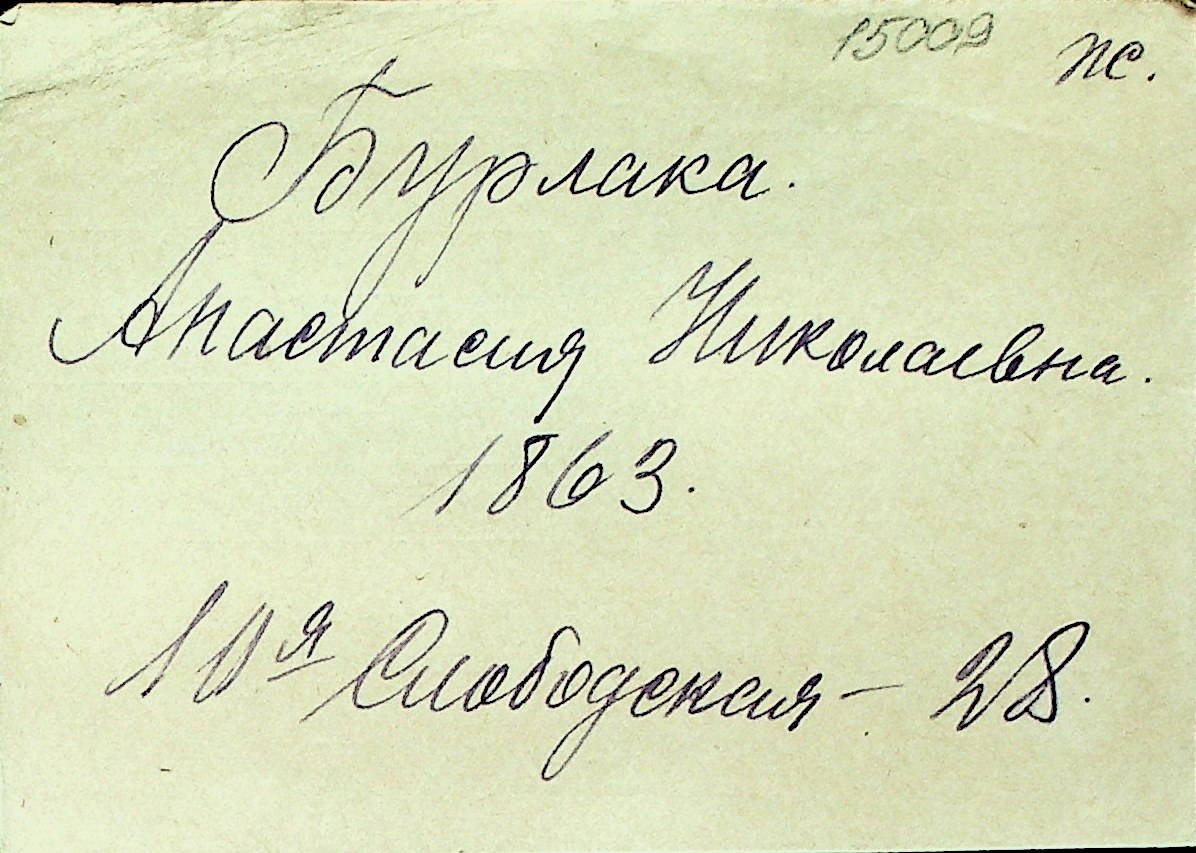 15009 пс.
Бурлака.
Анастасия Николаевна.
1863.
10я Слободская - 28.